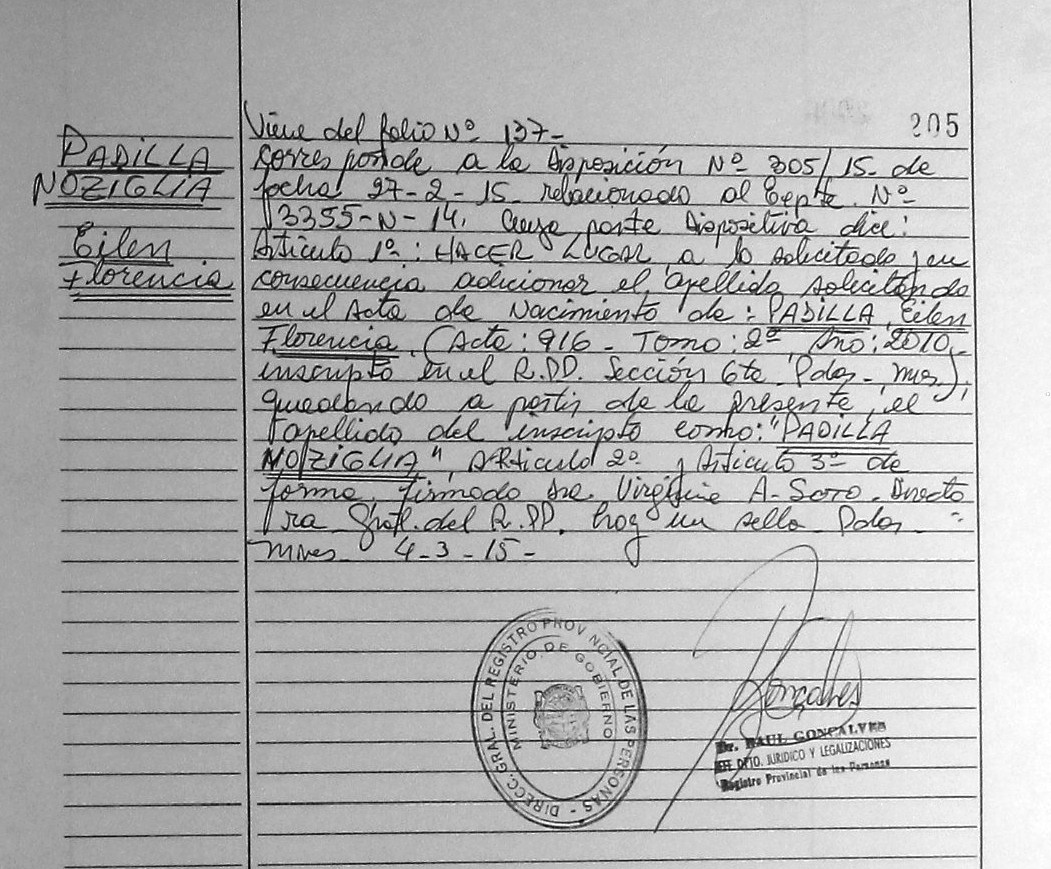 205
Viene del folio Nº 137-
PADILLA
NOZIGLIA
Eilen
Florencia
corresponde a la Disposición Nº 305/15- de
fecha 27-2-15 relacionado al Expte. Nº
3355-N-14. Cuya parte Dispositiva dice:
Artículo 1º: HACER LUGAR a lo solicitado, en
consecuencia adicionar el apellido solicitando
en el Acta de Nacimiento de: PADILLA, Eilen
Florencia, (Acta: 916 - Tomo: 2º, Año: 2010,-
inscripto en el R.PP. Sección 6ta Pdas- Mnes),
quedando a partir de la presente, el
apellido del inscripto como: "PADILLA
NOZIGLIA", ARtículo 2º y Artículo 3º de
forma. firmado Virginia A- Soto- Directo
ra Gral. del R.PP. hay un sello Pdas -
Mnes 4-3-15-
DIRECC. GRAL. DEL REGISTRO PROVINCIAL DE LAS PERSONAS -
MINISTERIO DE GOBIERNO
Goncalves
Dr. RAUL GONCALVES
JEFE DPTO. JURIDICO Y LEGALIZACIONES
Registro Provincial de las Personas